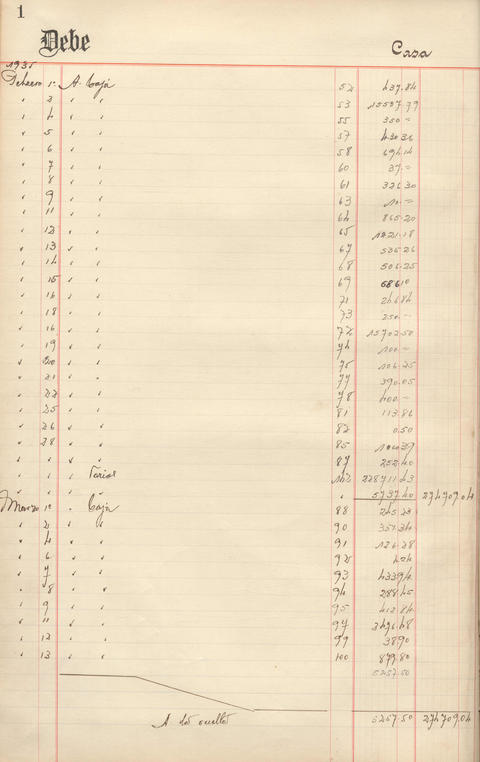 1
Debe Casa
1935
Febrero 1º A Caja 52 437.84
" 2 " " 53 15597.79
" 4 " " 55 350 =
" 5 " " 57 430.36
" 6 " " 58 694.14
" 7 " " 60 37. =
" 8 " " 61 326.30
" 9 " " 63 10. =
" 11 " " 64 865.20
" 12 " " 65 1421.18
" 13 " " 67 535.26
" 14 " " 68 506.25
" 15 " " 69 686.10
" 16 " " 71 246.84
" 18 " " 73 250. -
" 16 " " 72 15702.50
" 19 " " 74 100. =
" 20 " " 75 106.25
" 21 " " 77 390.05
" 22 " " 78 400. -
" 25 " " 81 113.86
" 26 " " 82 0.50
" 28 " " 85
" " " " 87 252.40
" " " Varios 228711.43
" " " " " 5737.40 274709.04
Marzo 1º " Caja 88 245.23
" 2 " " 90 351.34
" 4 " " 91 126.28
" 6 " " 92
" 7 " " 93 433.94
" 8 " " 94 288.45
" 9 " " 95 412.84
" 11 " " 97 2496.48
" 12 " " 99 38.90
" 13 " " 100 879.80
5257.50
A la vuelta 5257.50 274709.04